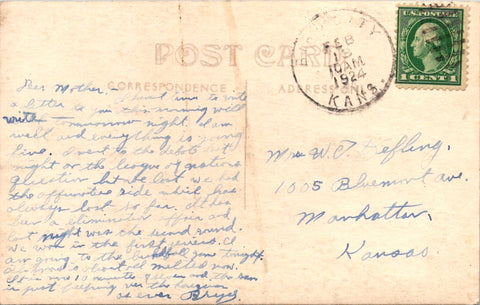 POST CARD
CORRESPONDENCE
ADDRESS ONLY
CITY
FEB
10 AM
1924
KANS.
U.S. POSTAGE
1 CENT 1
Dear Mother. I haven't time to write
a letter to you this evening will
write tomorrow night. I am
well and everything is going
fine. I went to the debate last
night on the league of nations
question but we lost we had
the affirmative side which has
always lost so far. It has
been a elimination affair and
last night was the second round.
We won in the first series. I
am going to the ball game tonight.
snow is about all melted now.
It is now 10 minutes and the sun
is just peeping over the horizon
as ever
Mrs W.C. Tefling.
1005 Bluemont ave.
Manhattan,
Kansas.